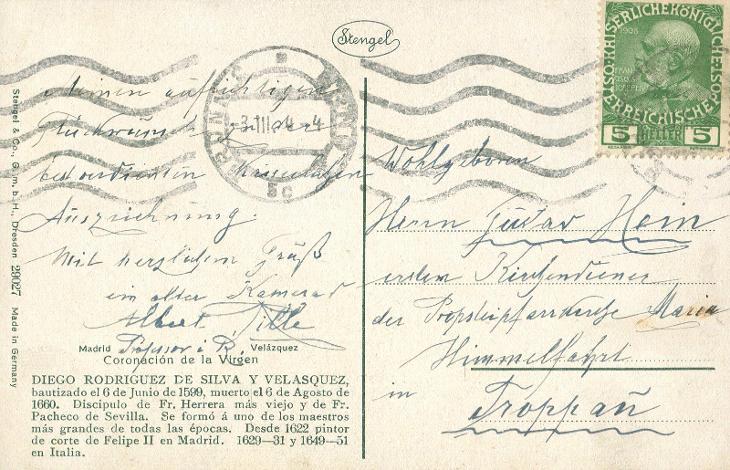 Stengel
KAISERLICHE KÖNIGLICHE ÖSTERREICHISCHE
1908
5 HELLER 5
BRÜNN
BRNO
-3.III.14.-4
5c
Meinen aufrichtigen
Glückwunsch zu der
Auszeichnung.
Mit herzlichem Gruß
ein alter Kamerad
Albert Tille
Professor i. R.
Wohlgeboren
Herrn Gustav Hein
ersten Kirchendiener
der Propsteipfarrkirche Maria
Himmelfahrt
in
Troppau
Madrid Velázquez
Coronación de la Virgen
DIEGO RODRIGUEZ DE SILVA Y VELASQUEZ,
bautizado el 6 de Junio de 1599, muerto el 6 de Agosto de
1660. Discipulo de Fr. Herrera más viejo y de Fr.
Pacheco de Sevilla. Se formó á uno de los maestros
más grandes de todas las épocas. Desde 1622 pintor
de corte de Felipe II en Madrid. 1629—31 y 1649—51
en Italia.
Stengel & Co., G.m.b.H., Dresden 29027 Made in Germany